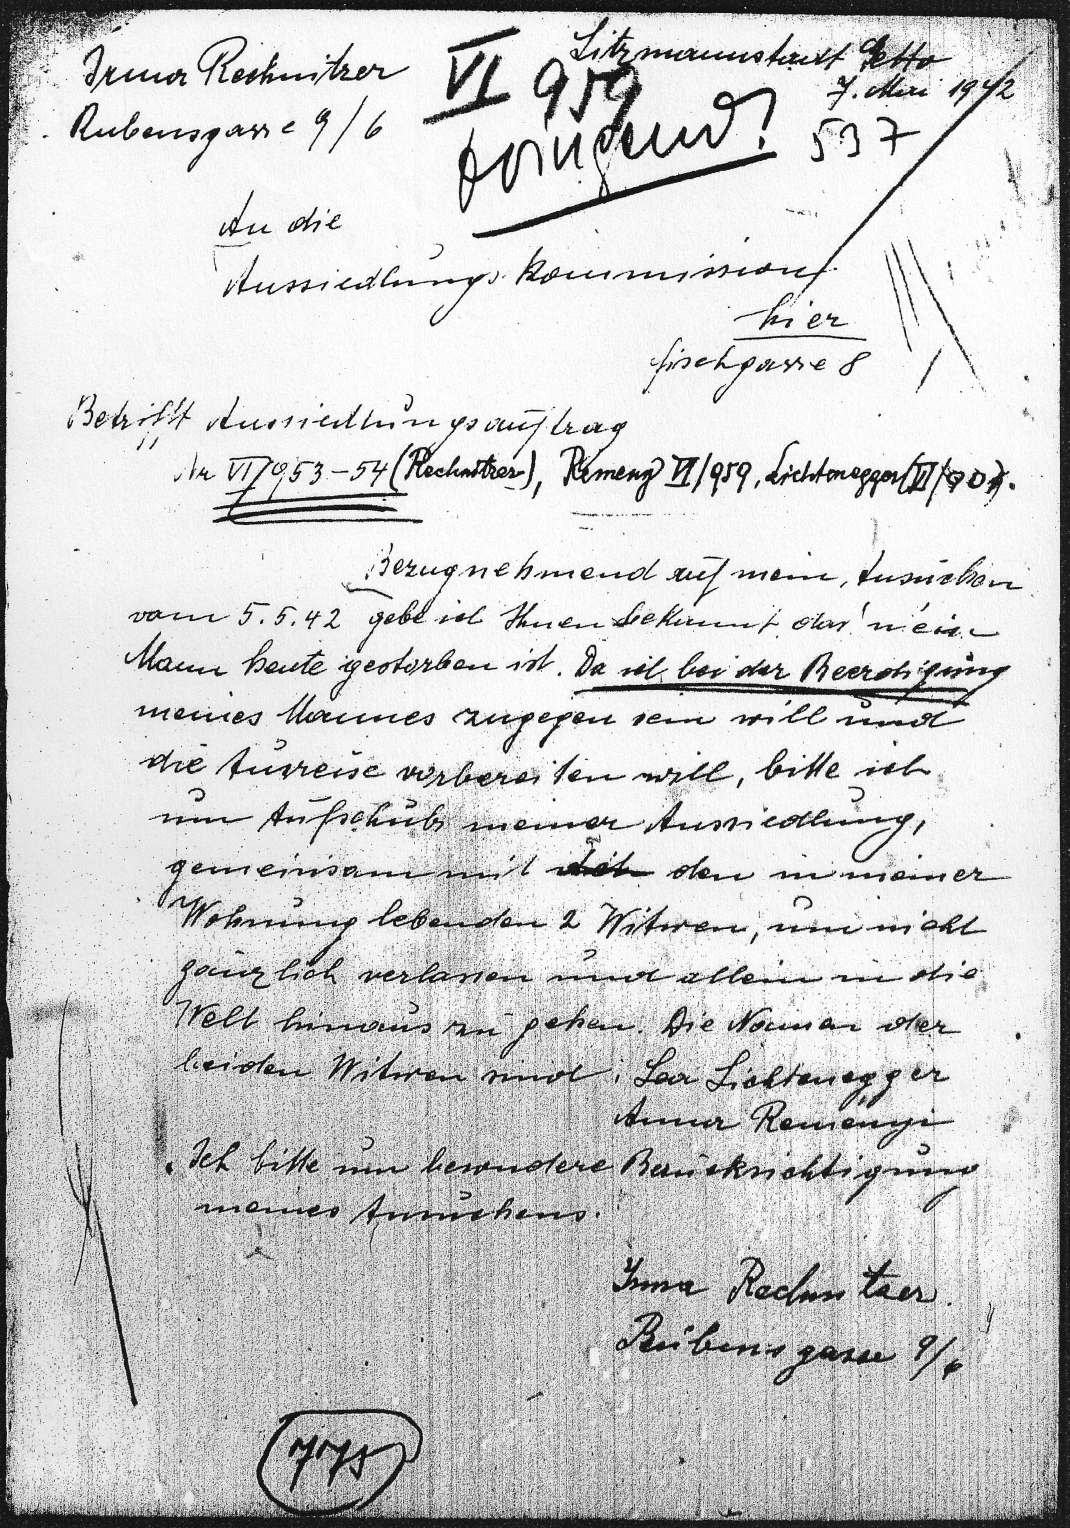 Irma Rechnitzer
Rubensgasse 9/6
VI 959
dringend!
Litzmannstadt Getto
7. Mai 1942
537
An die
Aussiedlungs Kommission
hier
Fischgasse 8
Betrifft Aussiedlungsauftrag
Nr VI/953-54 (Rechnitzer), Remenyi VI/959, Lichtenegger (VI/
Bezugnehmend auf mein Ansuchen
vom 5.5.42 gebe ich Ihnen bekannt das mein
Mann heute gestorben ist. Da ich bei der Beerdigung
meines Mannes zugegen sein will und
die Ausreise vorbereiten will, bitte ich
um Aufschub meiner Aussiedlung,
gemeinsam mit den in meiner
Wohnung lebenden 2 Witwen, um nicht
gänzlich verlassen und allein in die
Welt hinaus zu gehen. Die Namen der
beiden Witwen sind: Lea Lichtenegger
Anna Remenyi
Ich bitte um besondere Berücksichtigung
meines Ansuchens.
Irma Rechnitzer.
Rubensgasse 9/6
775